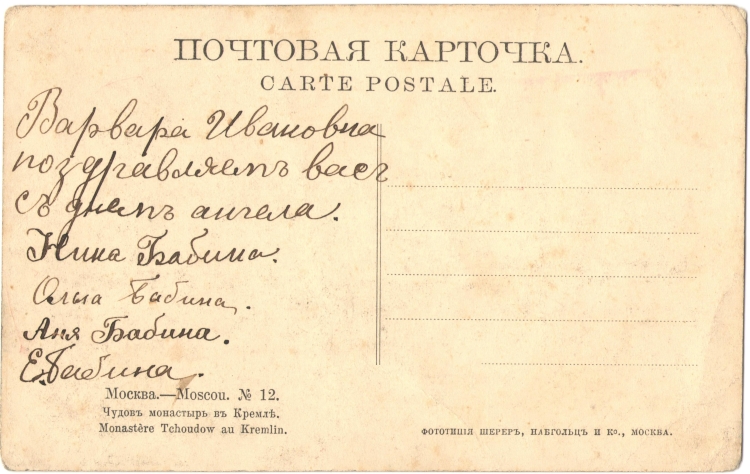 ПОЧТОВАЯ КАРТОЧКА.
CARTE POSTALE.
Варвара Ивановна
поздравляемъ васъ
съ днемъ ангела.
Нина Бабина.
Ольга Бабина.
Аня Бабина.
Е. Бабина.
Москва.—Moscou. № 12.
Чудовъ монастырь въ Кремлѣ.
Monastère Tchoudow au Kremlin.
ФОТОТИПІЯ ШЕРЕРЪ, НАБГОЛЬЦЪ И Ко., МОСКВА.